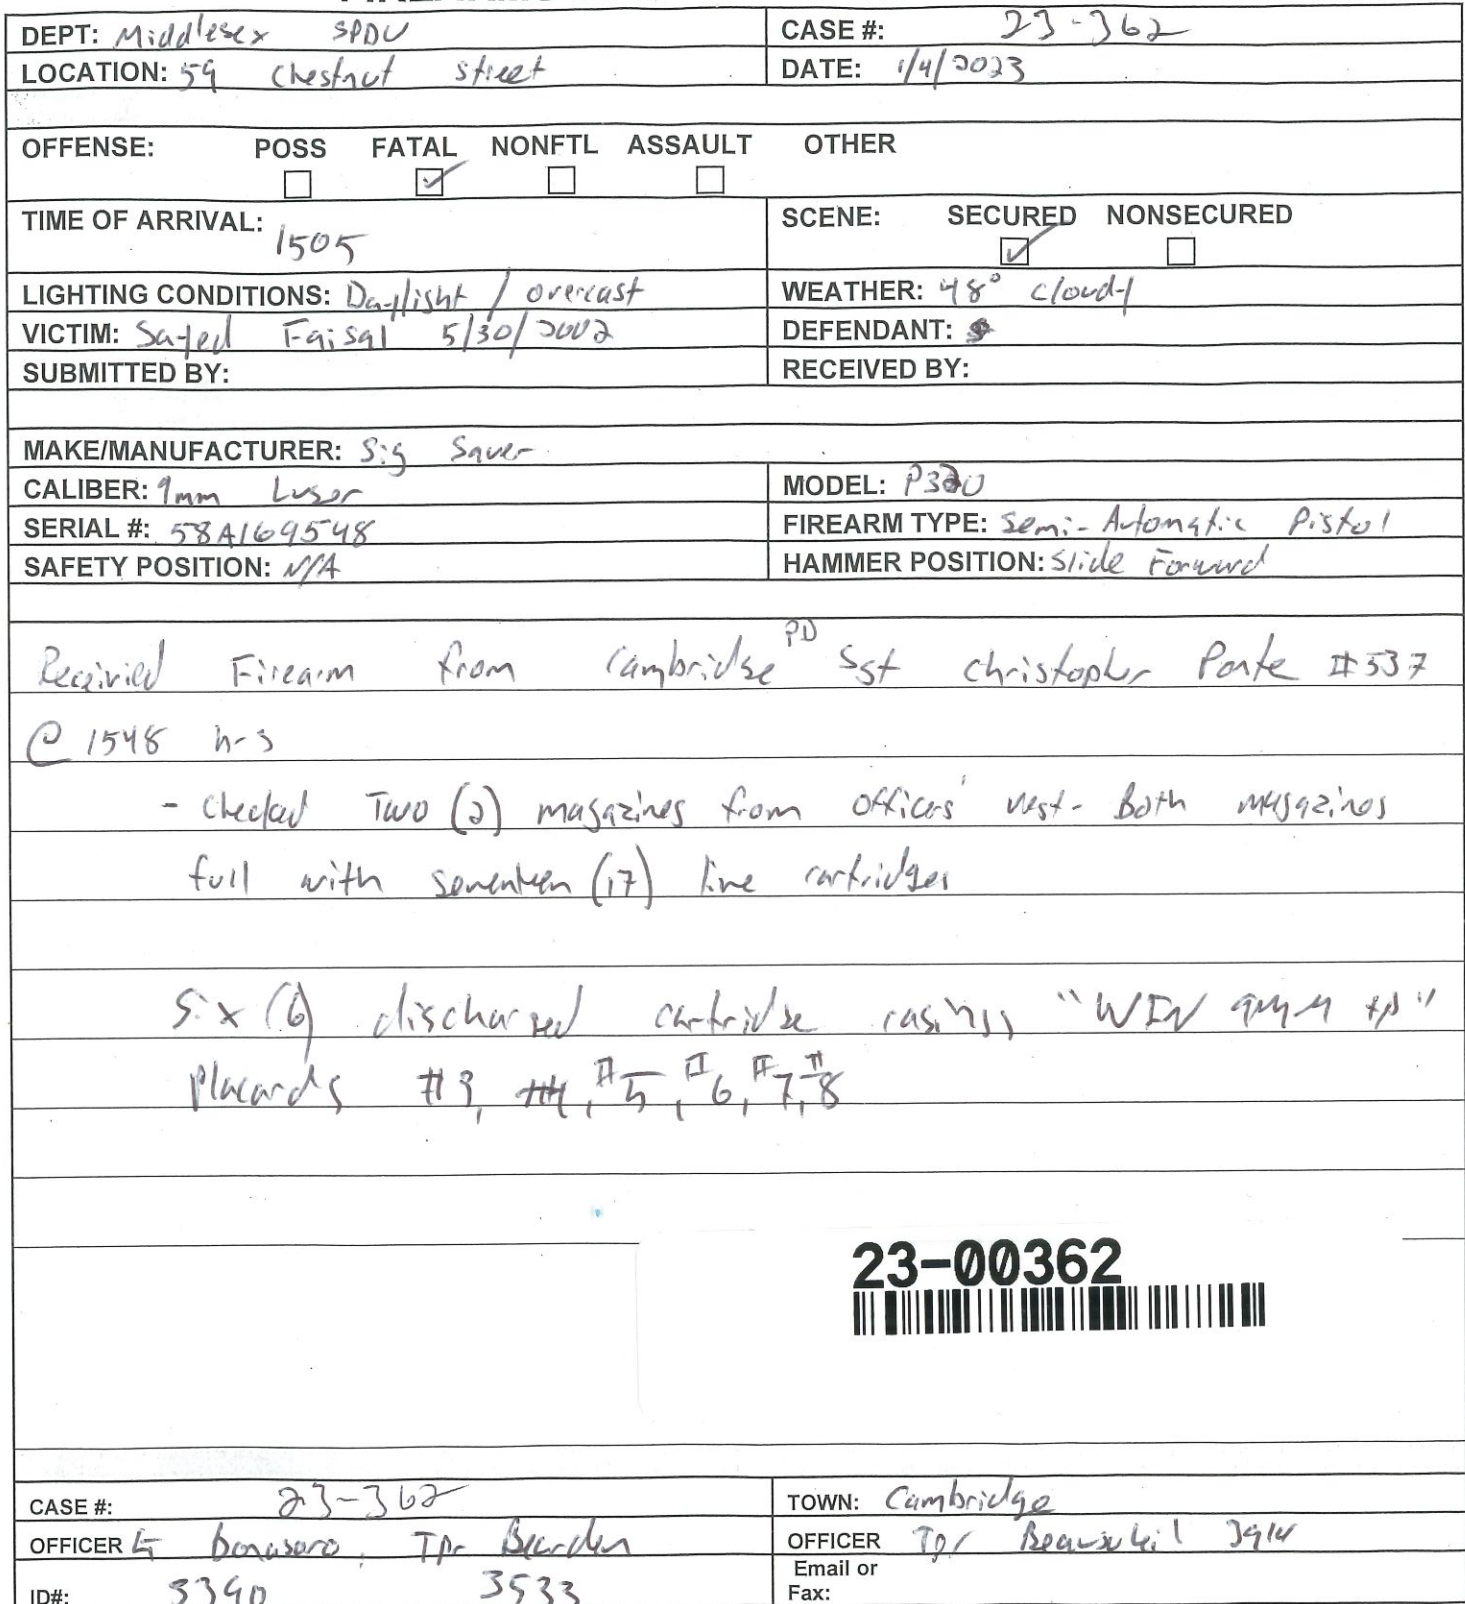 DEPT: Middlesex SPDU CASE #: 23-362
LOCATION: 59 Chestnut Street DATE: 1/4/2023
OFFENSE: POSS FATAL NONFTL ASSAULT OTHER
TIME OF ARRIVAL: 1505 SCENE: SECURED NONSECURED
LIGHTING CONDITIONS: Daylight / overcast WEATHER: 48° cloudy
VICTIM: Sayed Faisal 5/30/2002 DEFENDANT:
SUBMITTED BY: RECEIVED BY:
MAKE/MANUFACTURER: Sig Sauer
CALIBER: 9mm Luger MODEL: P320
SERIAL #: 58A169548 FIREARM TYPE: Semi-Automatic Pistol
SAFETY POSITION: N/A HAMMER POSITION: Slide Forward
Receivied Firearm from Cambridge PD Sgt Christopher #537
@ 1548 hrs
- checked Two (2) magazines from officers' vest - Both magazines
full with seventeen (17) live cartridges
Six (6) discharged cartridge casings "WIN 9mm"
Placards #3, #4, #5, #6, #7, #8
23-00362
CASE #: 23-362 TOWN: Cambridge
OFFICER Tpr Bearden OFFICER Tpr 3914
ID#: 3390 3533 Email or
Fax: